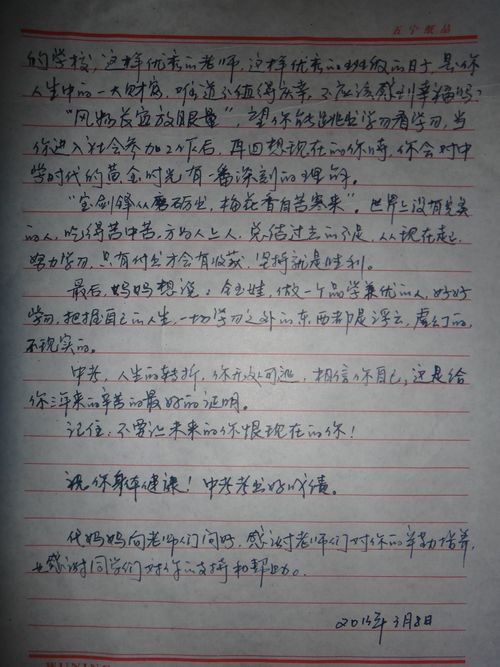 五宁纸品
的学校,这样优秀的老师,这样优秀的班级的日子,是你
人生中的一大财富,难道不值得庆幸,不应该感到幸福吗?
"风物长宜放眼量",望你能跳出学习看学习,当
你进入社会参加工作后,再回想现在的你时,你会对中
学时代的黄金时光有一番深刻的理解。
"宝剑锋从磨砺出,梅花香自苦寒来"。世界上没有完美
的人,吃得苦中苦,方为人上人,总结过去的不足,从现在起,
努力学习,只有付出才会有收获,坚持就是胜利。
最后,妈妈想说:娃,做一个品学兼优的人,好好
学习,把握自己的人生,一切学习之外的东西都是浮云,虚幻的,
不现实的。
中考,人生的转折,你无处可逃,相信你自己,这是给
你三年来的辛苦的最好的证明。
记住:不要让未来的你恨现在的你!
祝你身体健康!中考考出好成绩。
代妈妈向老师们问好,感谢老师们对你的辛勤培养,
感谢同学们对你的支持和帮助。
2013年3月8日